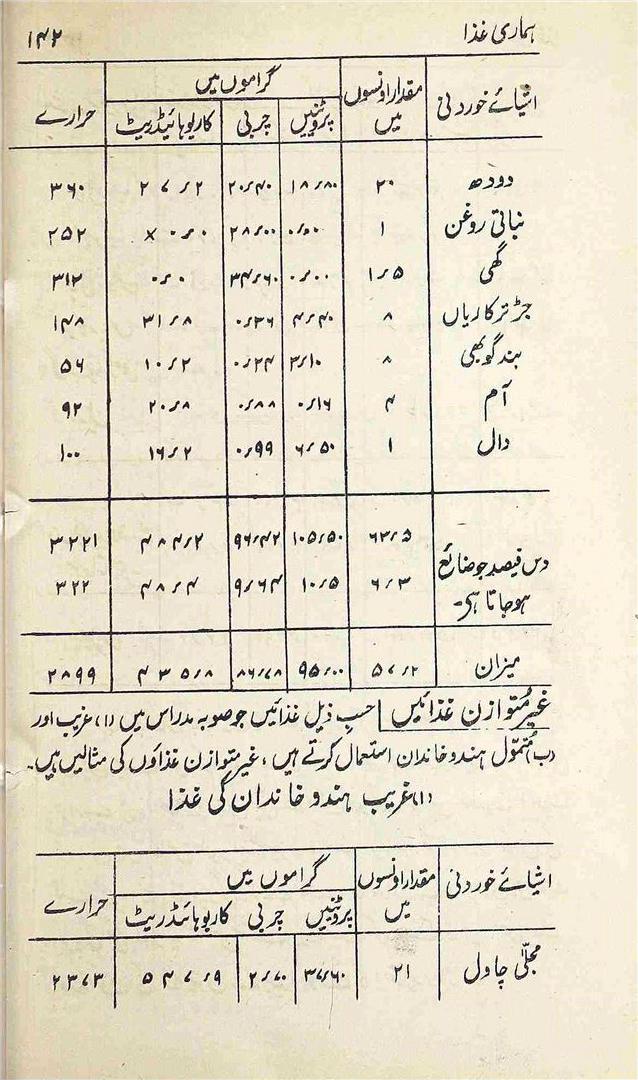 ہماری غذا ۱۴۲
اشیائے خوردنی مقدار اونسوں میں گراموں میں حرارے
پروٹئیں چربی کاربوہائیڈریٹ
دودھ ۲۰ ۱۸٫۸۰ ۲۰٫۴۰ ۲۷٫۲ ۳۶۰
نباتی روغن ۱ ۰٫۰۰ ۲۸٫۰۰ ۰٫۰ × ۲۵۲
گھی ۱٫۵ ۰٫۰۰ ۳۴٫۶۰ ۰٫۰ ۳۱۲
جڑ ترکاریاں ۸ ۴٫۴۰ ۰٫۳۶ ۳۱٫۸ ۱۴۸
بند گوبھی ۸ ۳٫۱۰ ۰٫۲۴ ۱۰٫۲ ۵۶
آم ۴ ۰٫۱۶ ۰٫۸۸ ۲۰٫۸ ۹۲
دال ۱ ۶٫۵۰ ۰٫۹۹ ۱۶٫۲ ۱۰۰
۶۳٫۵ ۱۰۵٫۵۰ ۹۶٫۴۲ ۴۸۴٫۲ ۳۲۲۱
دس فیصد جو ضائع ۶٫۳ ۱۰٫۵ ۹٫۶۴ ۴۸٫۴ ۳۲۲
ہوجاتا ہی۔
میزان ۵۷٫۲ ۹۵٫۰۰ ۸۶٫۷۸ ۴۳۵٫۸ ۲۸۹۹
غیر مُتوازن غذائیں حسبِ ذیل غذائیں جو صوبہ مدراس میں (۱) غریب اور
(ب) مُتموّل ہندو خاندان استعمال کرتے ہیں، غیر متوازن غذاؤں کی مثالیں ہیں۔
(۱) غریب ہندو خاندان کی غذا
اشیائے خوردنی مقدار اونسوں میں گراموں میں حرارے
پروٹئیں چربی کاربوہائیڈریٹ
مجلّیٰ چاول ۲۱ ۳۷٫۶۰ ۲٫۷۰ ۵۴۷٫۹ ۲۳۷۳